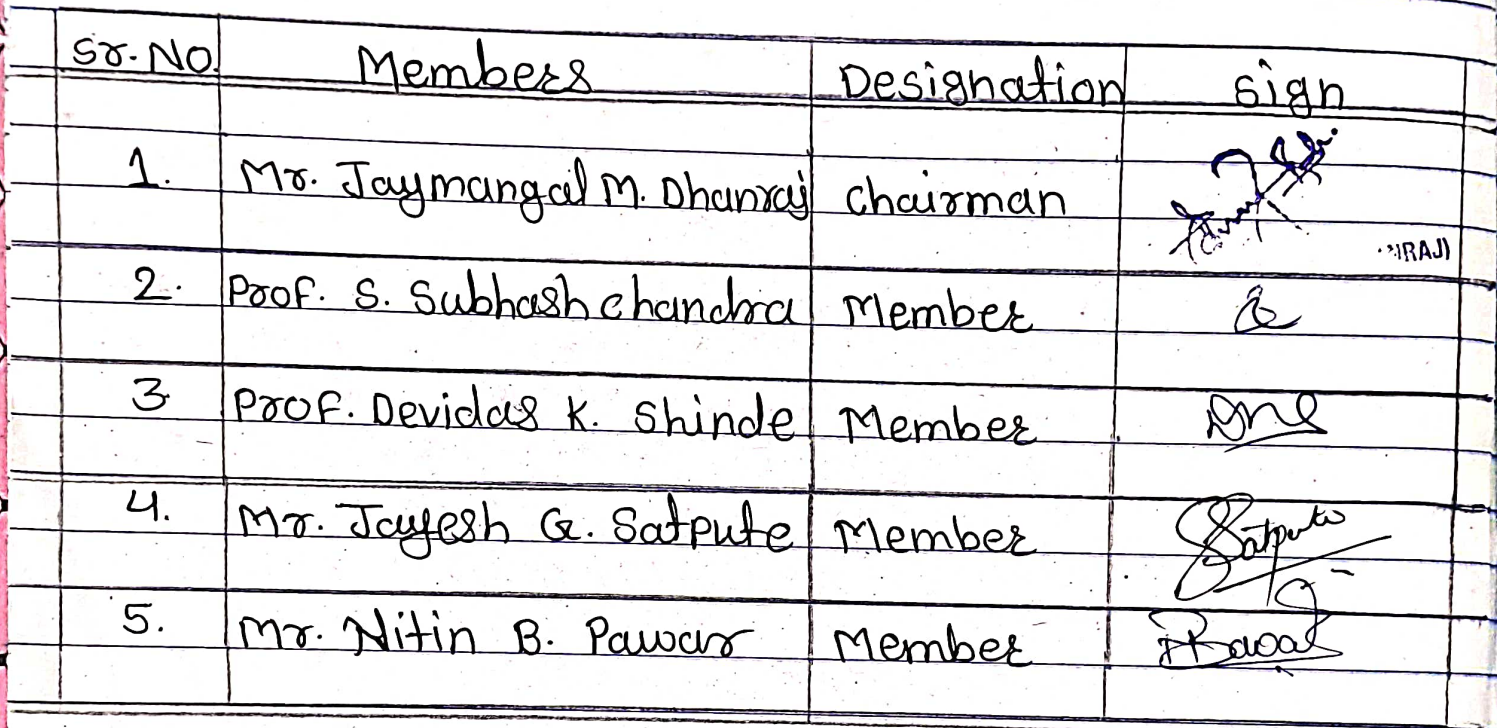 Sr. No. Members Designation sign
1. Mr. Jaymangal M. Dhanraj chairman
2. Prof. S. Subhash chandra Member
3. Prof. Devidas K. Shinde Member
4. Mr. Jayesh G. Satpute Member Satpute
5. Mr. Nitin B. Pawar Member